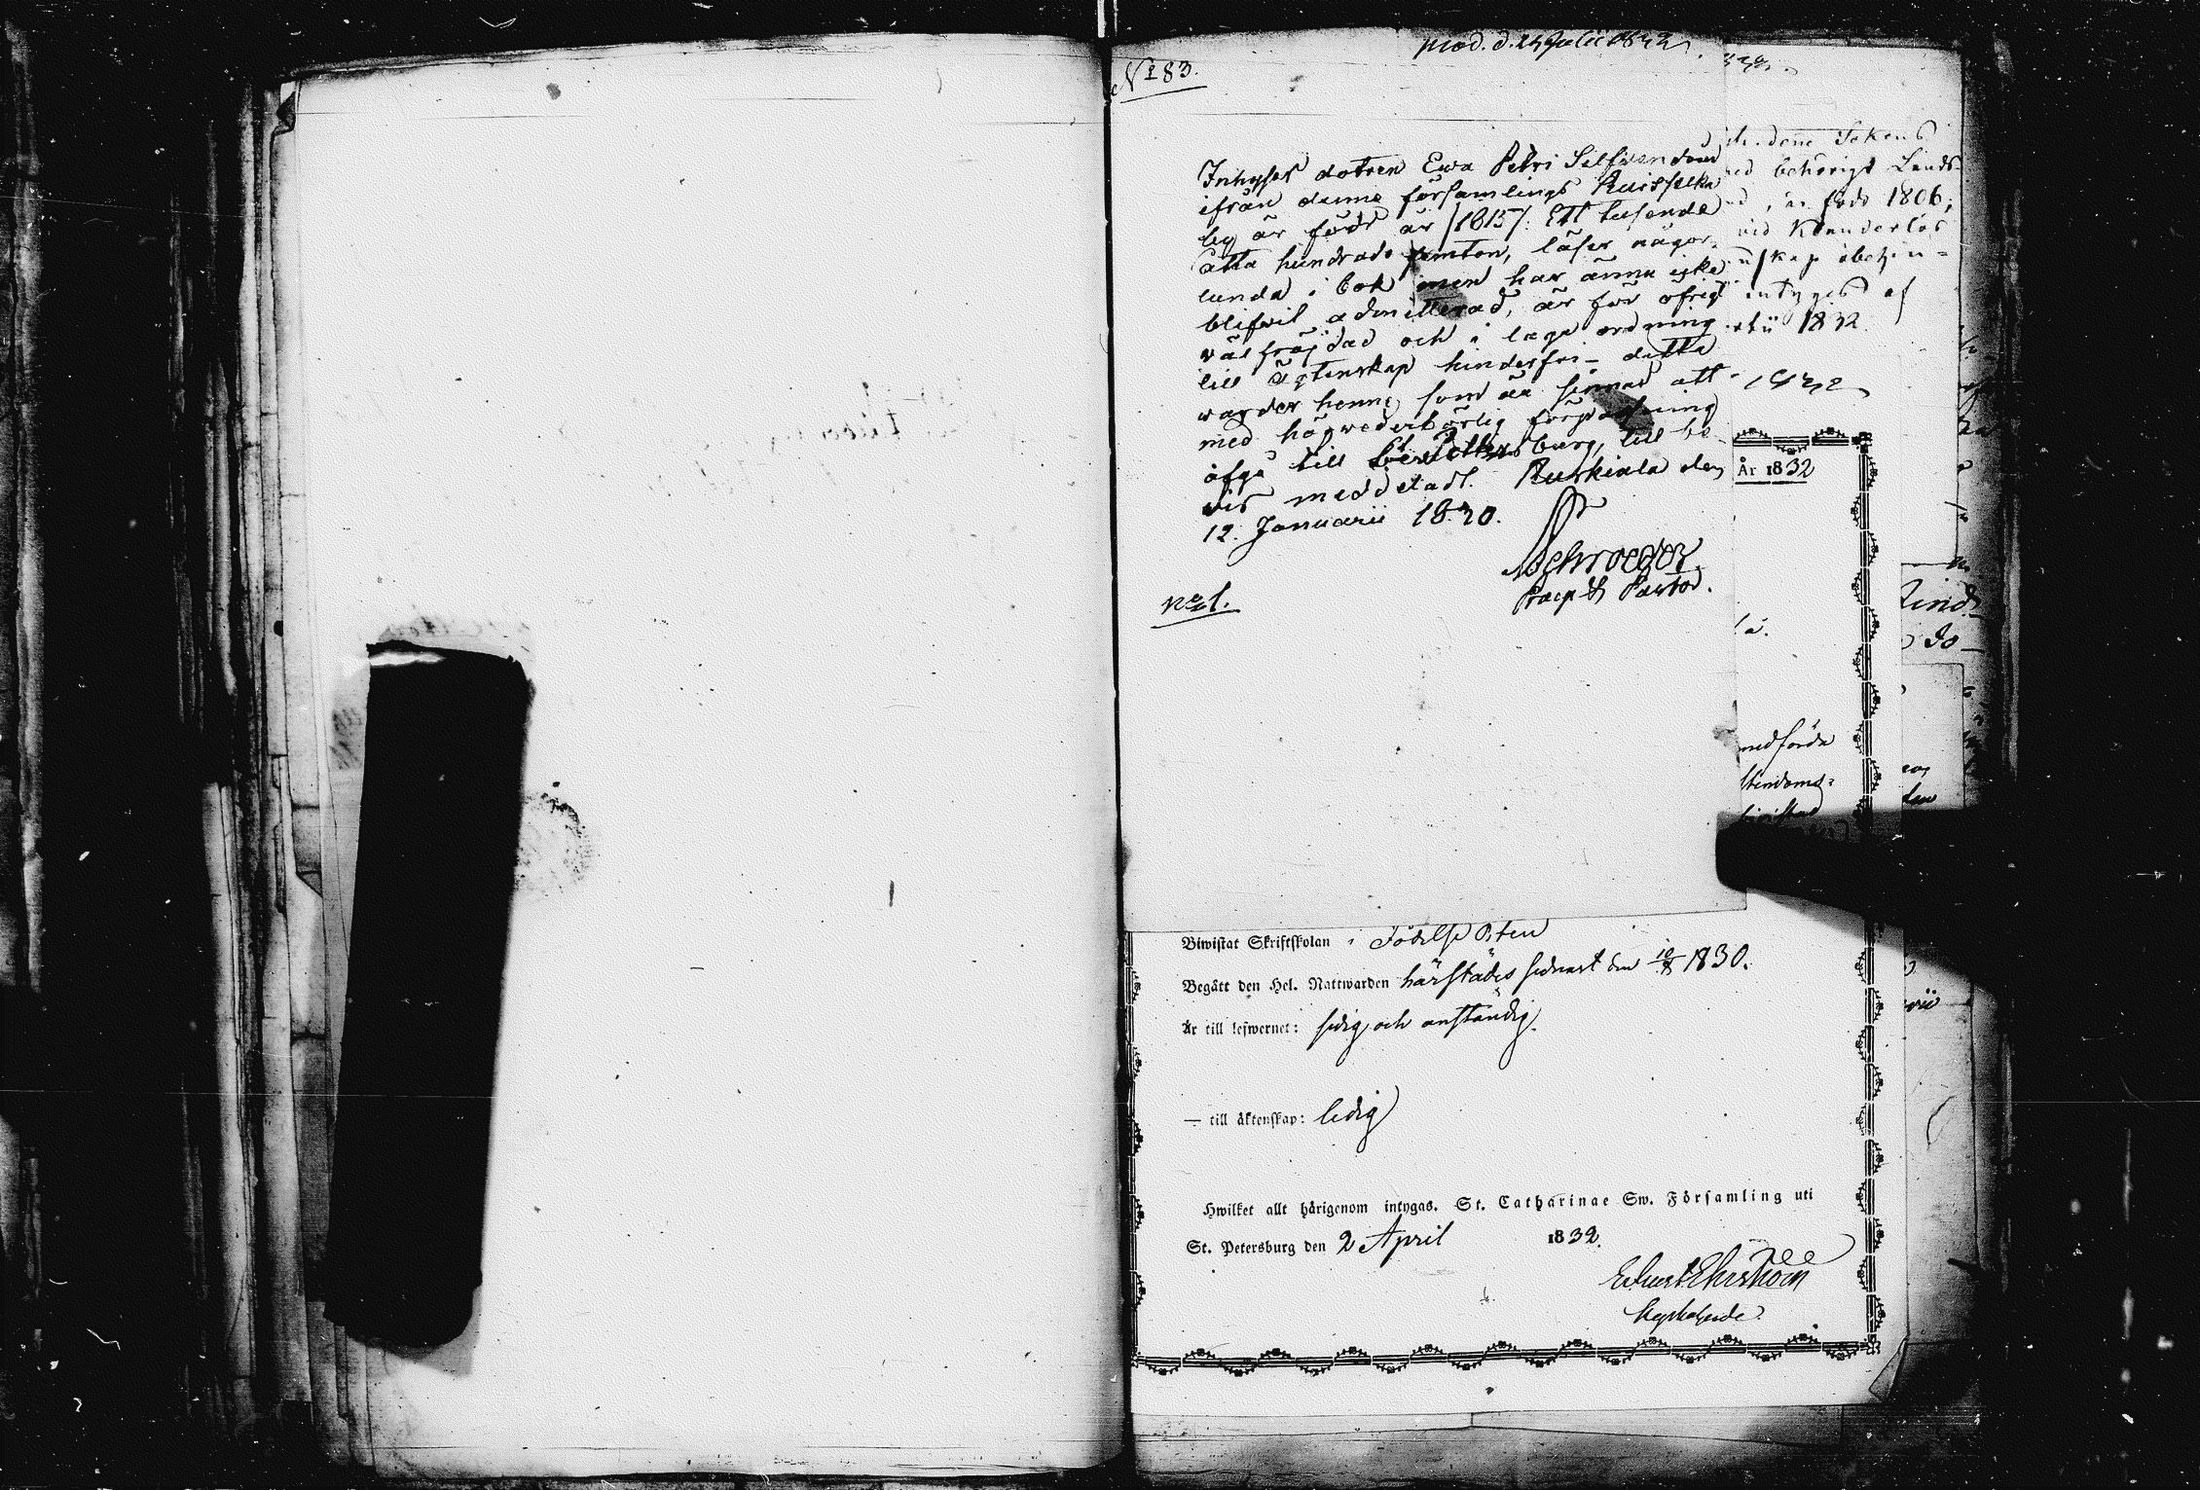 prod. d. 24 Julii 1832.
No 83.
Inhyses dotren Ewa Petri Silfwendoin
ifrån denna församlings Ruisselkä
by är född år /1815/. Ett tusende
åtta hundrade femton, läser någor-
lunda i bok men har ännu icke
blifwit admitterad, är för öfrigt
wälfräjdad och i laga ordning
till ägtenskap hinderfri – detta
warder henne som är sinnad att
med högwederbörlig förpassning
afgå till St Petersburg, till be-
vis meddeladt. Ruskiala den
12. Januarii 1830.
Schroeder
Praep & Pastor.
no 1.
denne Sokens
behörigt Lands-
född 1806;
intygas af
1832.
1832
År 1832
medförda
stendoms-
Biwistat Skriftskolan i Födelse Orten
Begått den Hel. Nattwarden härstädes sednast den 10/8 1830.
Är till lefwernet: sedig och anständig.
— till äktenskap: ledig
Hwilket allt härigenom intygas. St. Catharinae Sw. Församling uti
St. Petersburg den 2 April 1832.
Ehrström
Kyrkoherde.